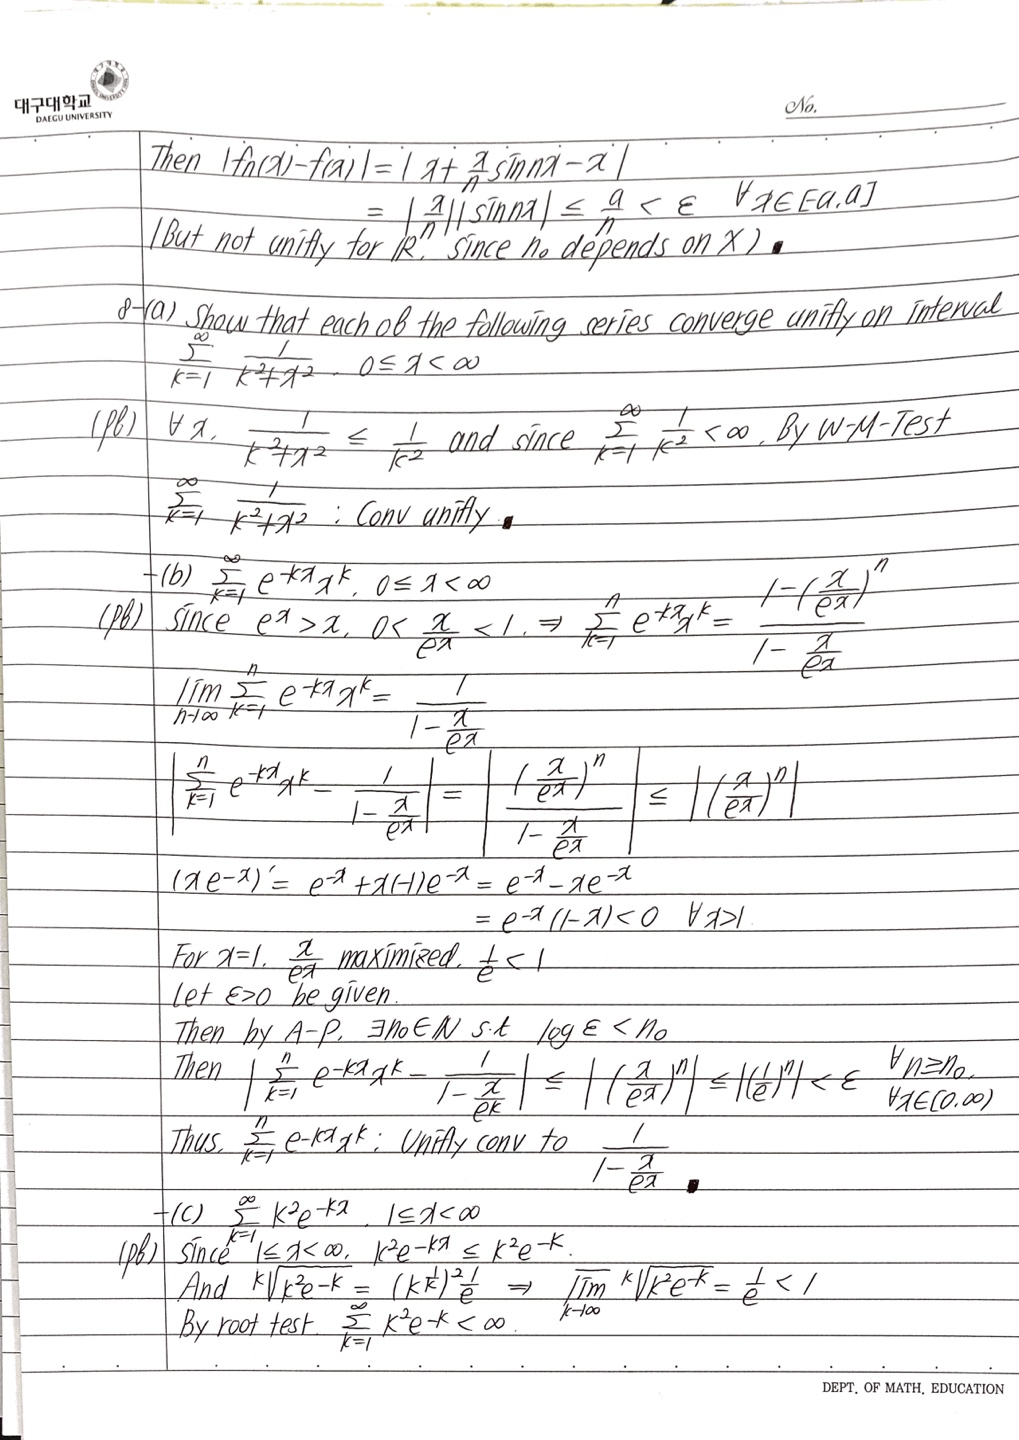 대구대학교
DAEGU UNIVERSITY
No.
Then |fn(x)-f(x)| = |x + x/n sin nx - x|
= |x/n||sin nx| ≤ a/n < ε ∀x∈[-a,a]
(But not unifly for ℝ, since n₀ depends on x) ∎
8-(a) Show that each of the following series converge unifly on interval
∞Σk=1 1/(k²+x²), 0≤x<∞
(pf) ∀x, 1/(k²+x²) ≤ 1/k² and since ∞Σk=1 1/k² < ∞, By W-M-Test
∞Σk=1 1/(k²+x²) : Conv unifly ∎
-(b) ∞Σk=1 e^-kx x^k, 0≤x<∞
(pf) since e^x > x, 0 < x/e^x < 1, ⇒ nΣk=1 e^-kx x^k = (1-(x/e^x)^n)/(1-x/e^x)
lim n→∞ nΣk=1 e^-kx x^k = 1/(1-x/e^x)
|nΣk=1 e^-kx x^k - 1/(1-x/e^x)| = |(x/e^x)^n/(1-x/e^x)| ≤ |(x/e^x)^n|
(xe^-x)' = e^-x + x(-1)e^-x = e^-x - xe^-x
= e^-x(1-x) < 0 ∀x>1
For x=1, x/e^x maximized, 1/e < 1
Let ε>0 be given.
Then by A-P, ∃n₀∈N s.t log ε < n₀
Then |nΣk=1 e^-kx x^k - 1/(1-x/e^k)| ≤ |(x/e^x)^n| ≤ |(1/e)^n| < ε ∀n≥n₀, ∀x∈(0,∞)
Thus, nΣk=1 e^-kx x^k : Unifly conv to 1/(1-x/e^x) ∎
-(c) ∞Σk=1 k²e^-kx, 1≤x<∞
(pf) since 1≤x<∞, k²e^-kx ≤ k²e^-k.
And ᵏ√(k²e^-k) = (k^(1/k))² 1/e ⇒ lim k→∞ ᵏ√(k²e^-k) = 1/e < 1
By root test, ∞Σk=1 k²e^-k < ∞.
DEPT. OF MATH. EDUCATION